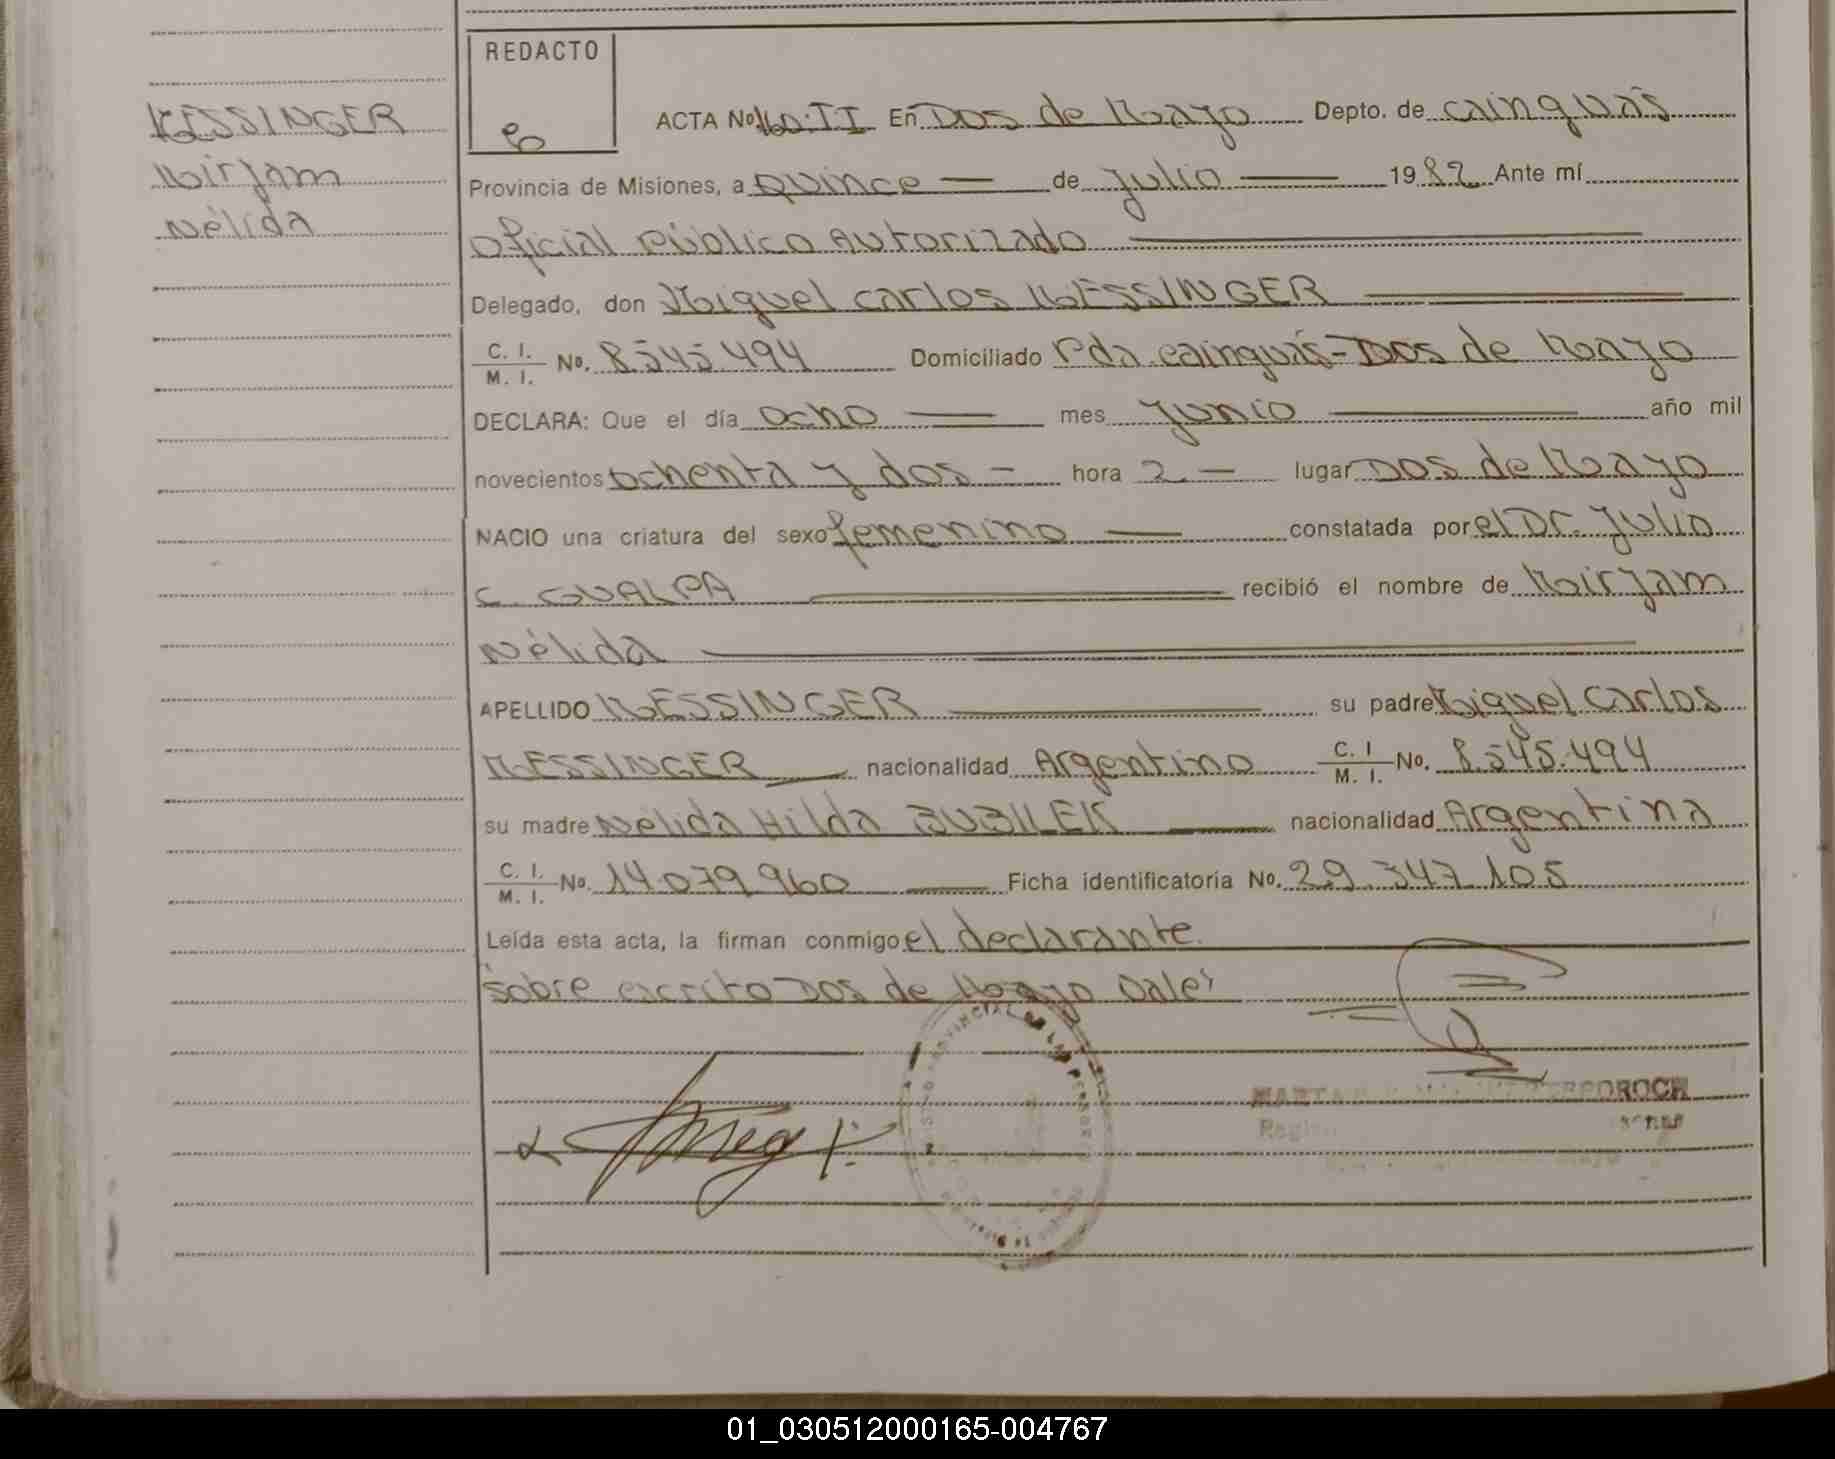 REDACTO
MESSINGER
Mirjam
Nélida
ACTA No 160·II En Dos de Mayo Depto. de Cainguás
Provincia de Misiones, a Quince — de Julio — 1982 Ante mí
Oficial Público Autorizado —
Delegado, don Miguel Carlos MESSINGER —
C. I. / M. I. No. 8.545.494 Domiciliado Pda Cainguás-Dos de Mayo
DECLARA: Que el día ocho — mes Junio — año mil
novecientos ochenta y dos — hora 2 — lugar Dos de Mayo
NACIO una criatura del sexo femenino — constatada por el Dr. Julio
C. GUALPA — recibió el nombre de Mirjam
Nélida —
APELLIDO MESSINGER — su padre Miguel Carlos
MESSINGER — nacionalidad Argentino C. I / M. I. No. 8.545.494
su madre Nélida Hilda BUBILEK — nacionalidad Argentina
C. I. / M. I. No. 14.079.960 — Ficha identificatoria No. 29.347.105
Leída esta acta, la firman conmigo el declarante.
Sobre escrito Dos de Mayo Vale
01_030512000165-004767